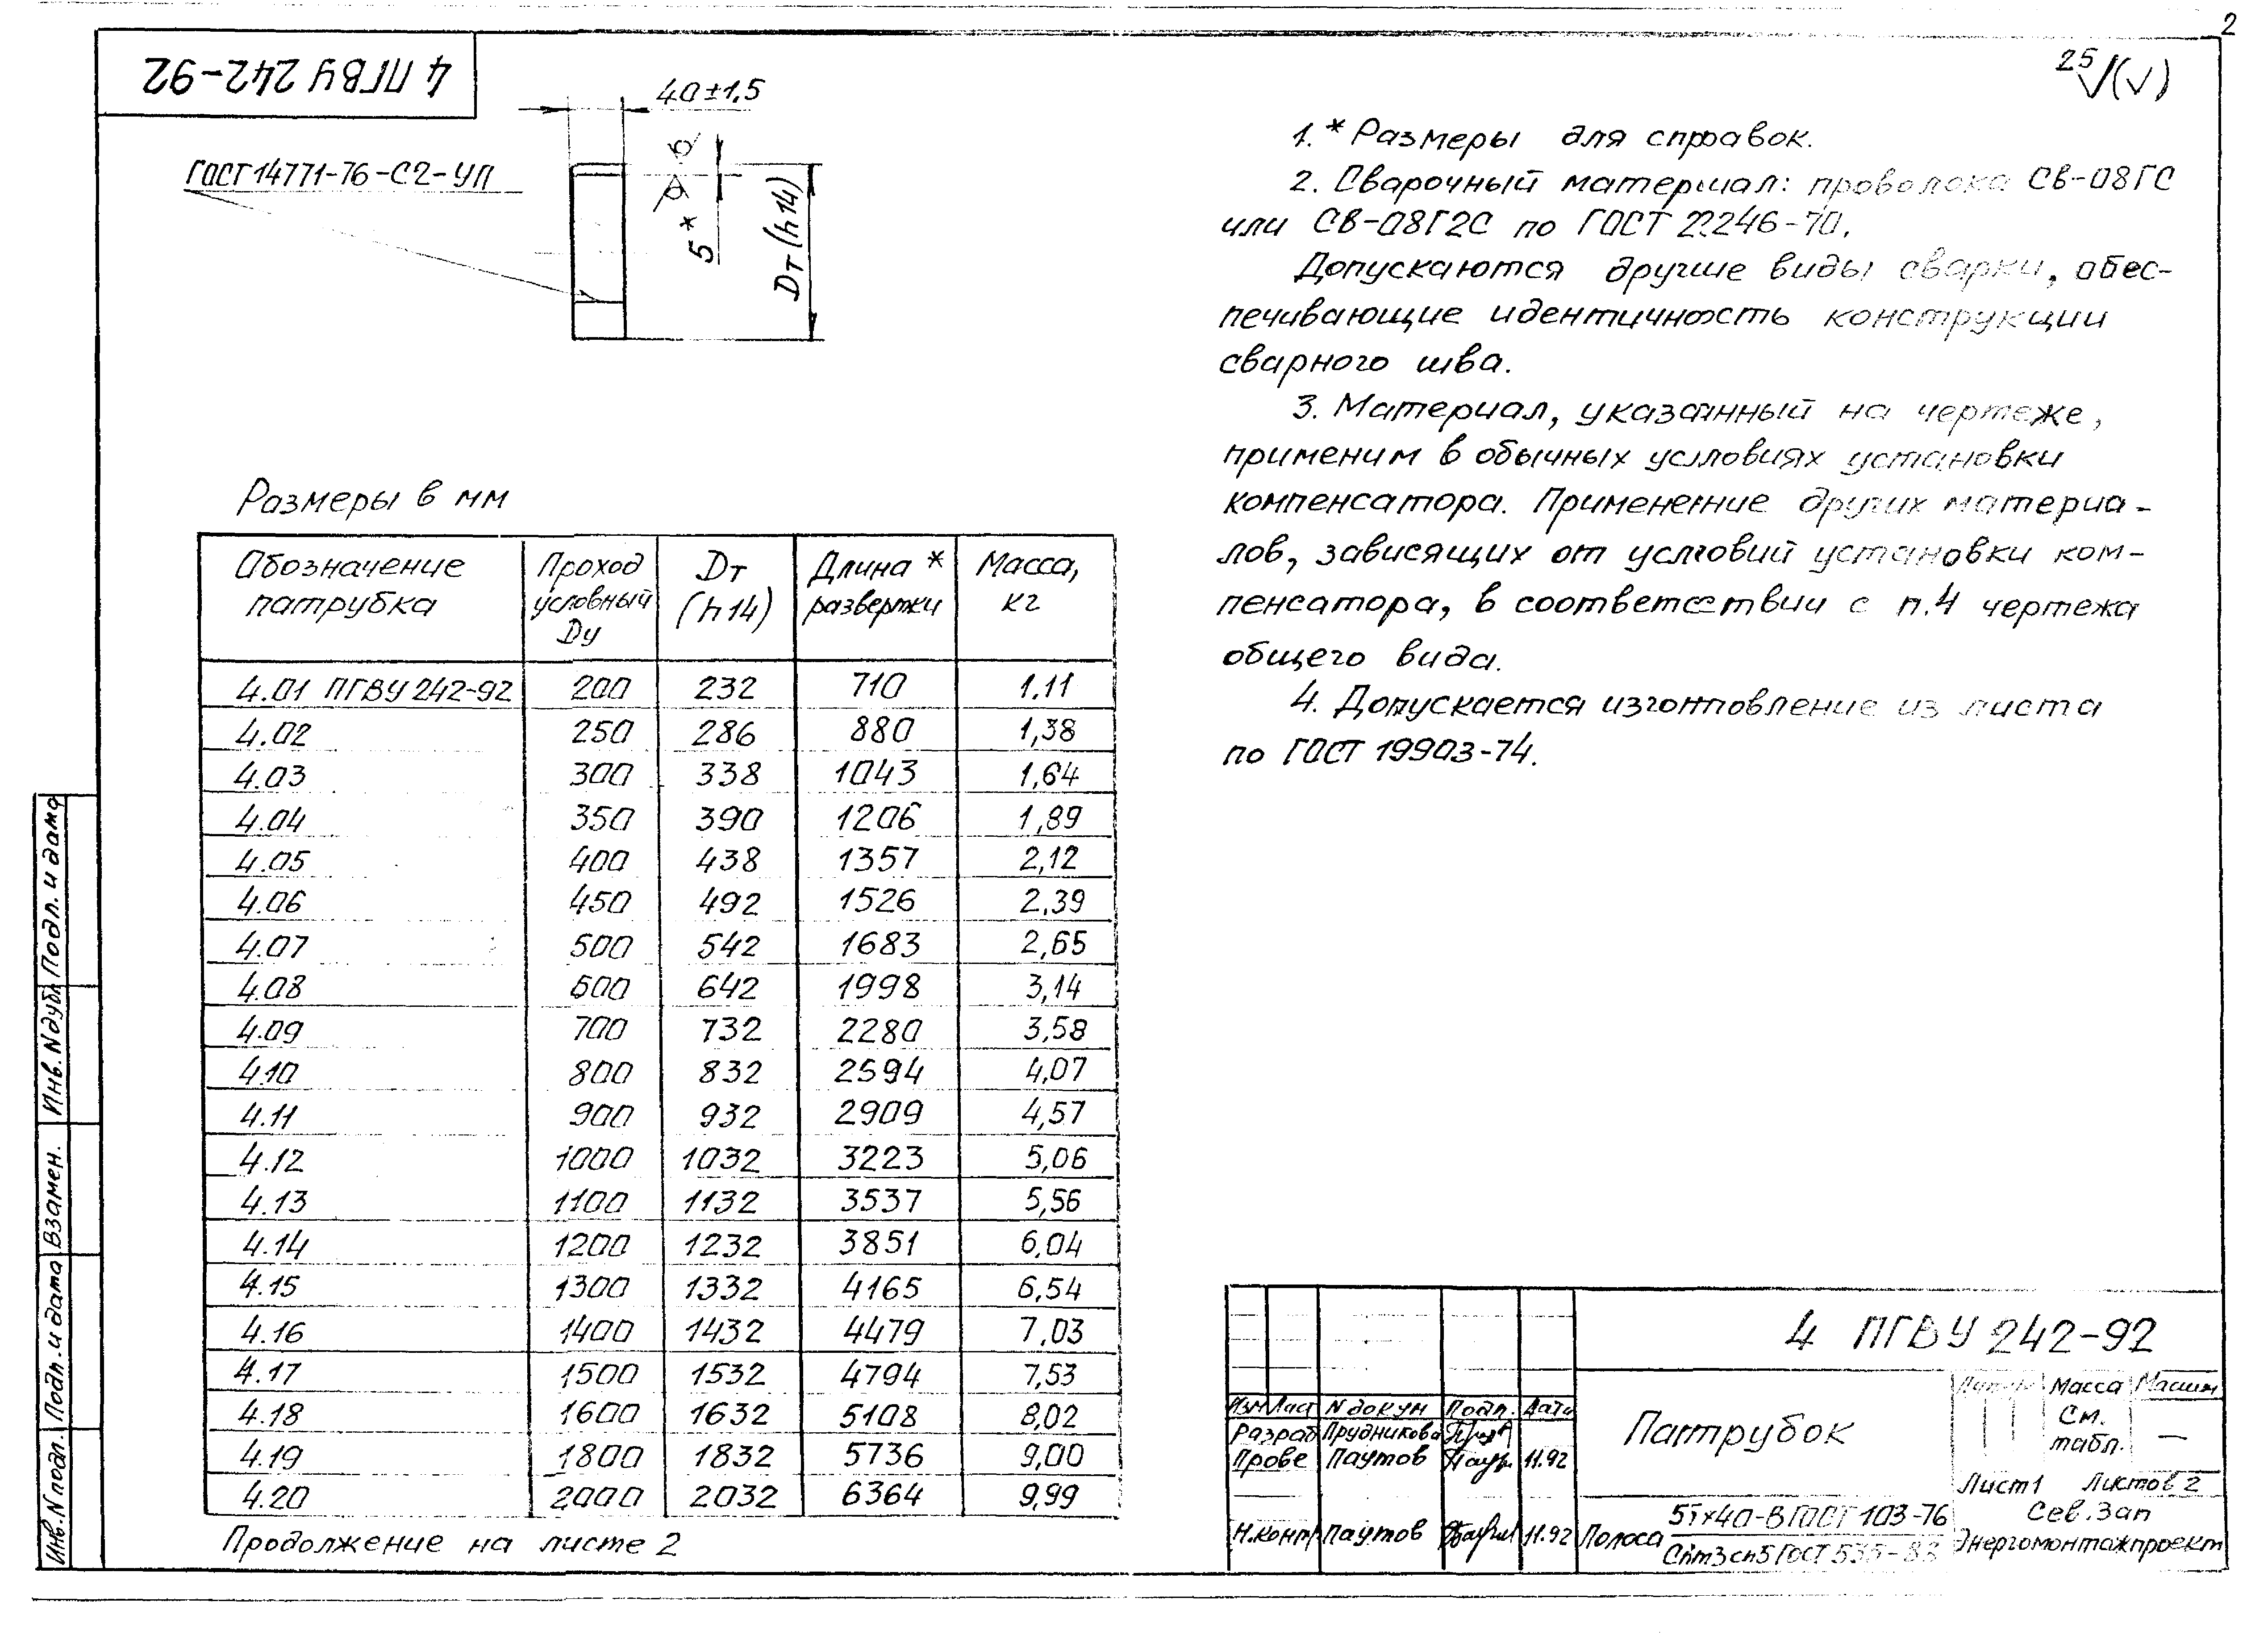 2
4 ПГВУ 242-92
40±1,5
ГОСТ 14771-76-С2-УП
5*
Dт (h14)
25 √(√)
1.* Размеры для справок.
2. Сварочный материал: проволока СВ-08ГС
или СВ-08Г2С по ГОСТ 2246-70.
Допускаются другие виды сварки, обес-
печивающие идентичность конструкции
сварного шва.
3. Материал, указанный на чертеже,
применим в обычных условиях установки
компенсатора. Применение других материа-
лов, зависящих от условий установки ком-
пенсатора, в соответствии с п.4 чертежа
общего вида.
4. Допускается изготовление из листа
по ГОСТ 19903-74.
Размеры в мм
Обозначение патрубка | Проход условный Dу | Dт (h14) | Длина * развертки | Масса, кг
4.01 ПГВУ 242-92 200 232 710 1.11
4.02 250 286 880 1,38
4.03 300 338 1043 1,64
4.04 350 390 1206 1,89
4.05 400 438 1357 2,12
4.06 450 492 1526 2,39
4.07 500 542 1683 2,65
4.08 600 642 1998 3,14
4.09 700 732 2280 3,58
4.10 800 832 2594 4,07
4.11 900 932 2909 4,57
4.12 1000 1032 3223 5,06
4.13 1100 1132 3537 5,56
4.14 1200 1232 3851 6,04
4.15 1300 1332 4165 6,54
4.16 1400 1432 4479 7,03
4.17 1500 1532 4794 7,53
4.18 1600 1632 5108 8,02
4.19 1800 1832 5736 9,00
4.20 2000 2032 6364 9,99
Продолжение на листе 2
Подп. и дата
Инв. N дубл
Взамен.
Подп. и дата
Инв. N подл.
4 ПГВУ 242-92
Изм Лист N докум Подп. Дата
Разраб Прудникова
Прове Паутов 11.92
Н.контр Паутов 11.92
Патрубок
Масса Масшт
См. табл. —
Лист 1 Листов 2
Полоса 5х40-В ГОСТ 103-76
Ст3сп5 ГОСТ 535-88
Сев.Зап
Энергомонтажпроект